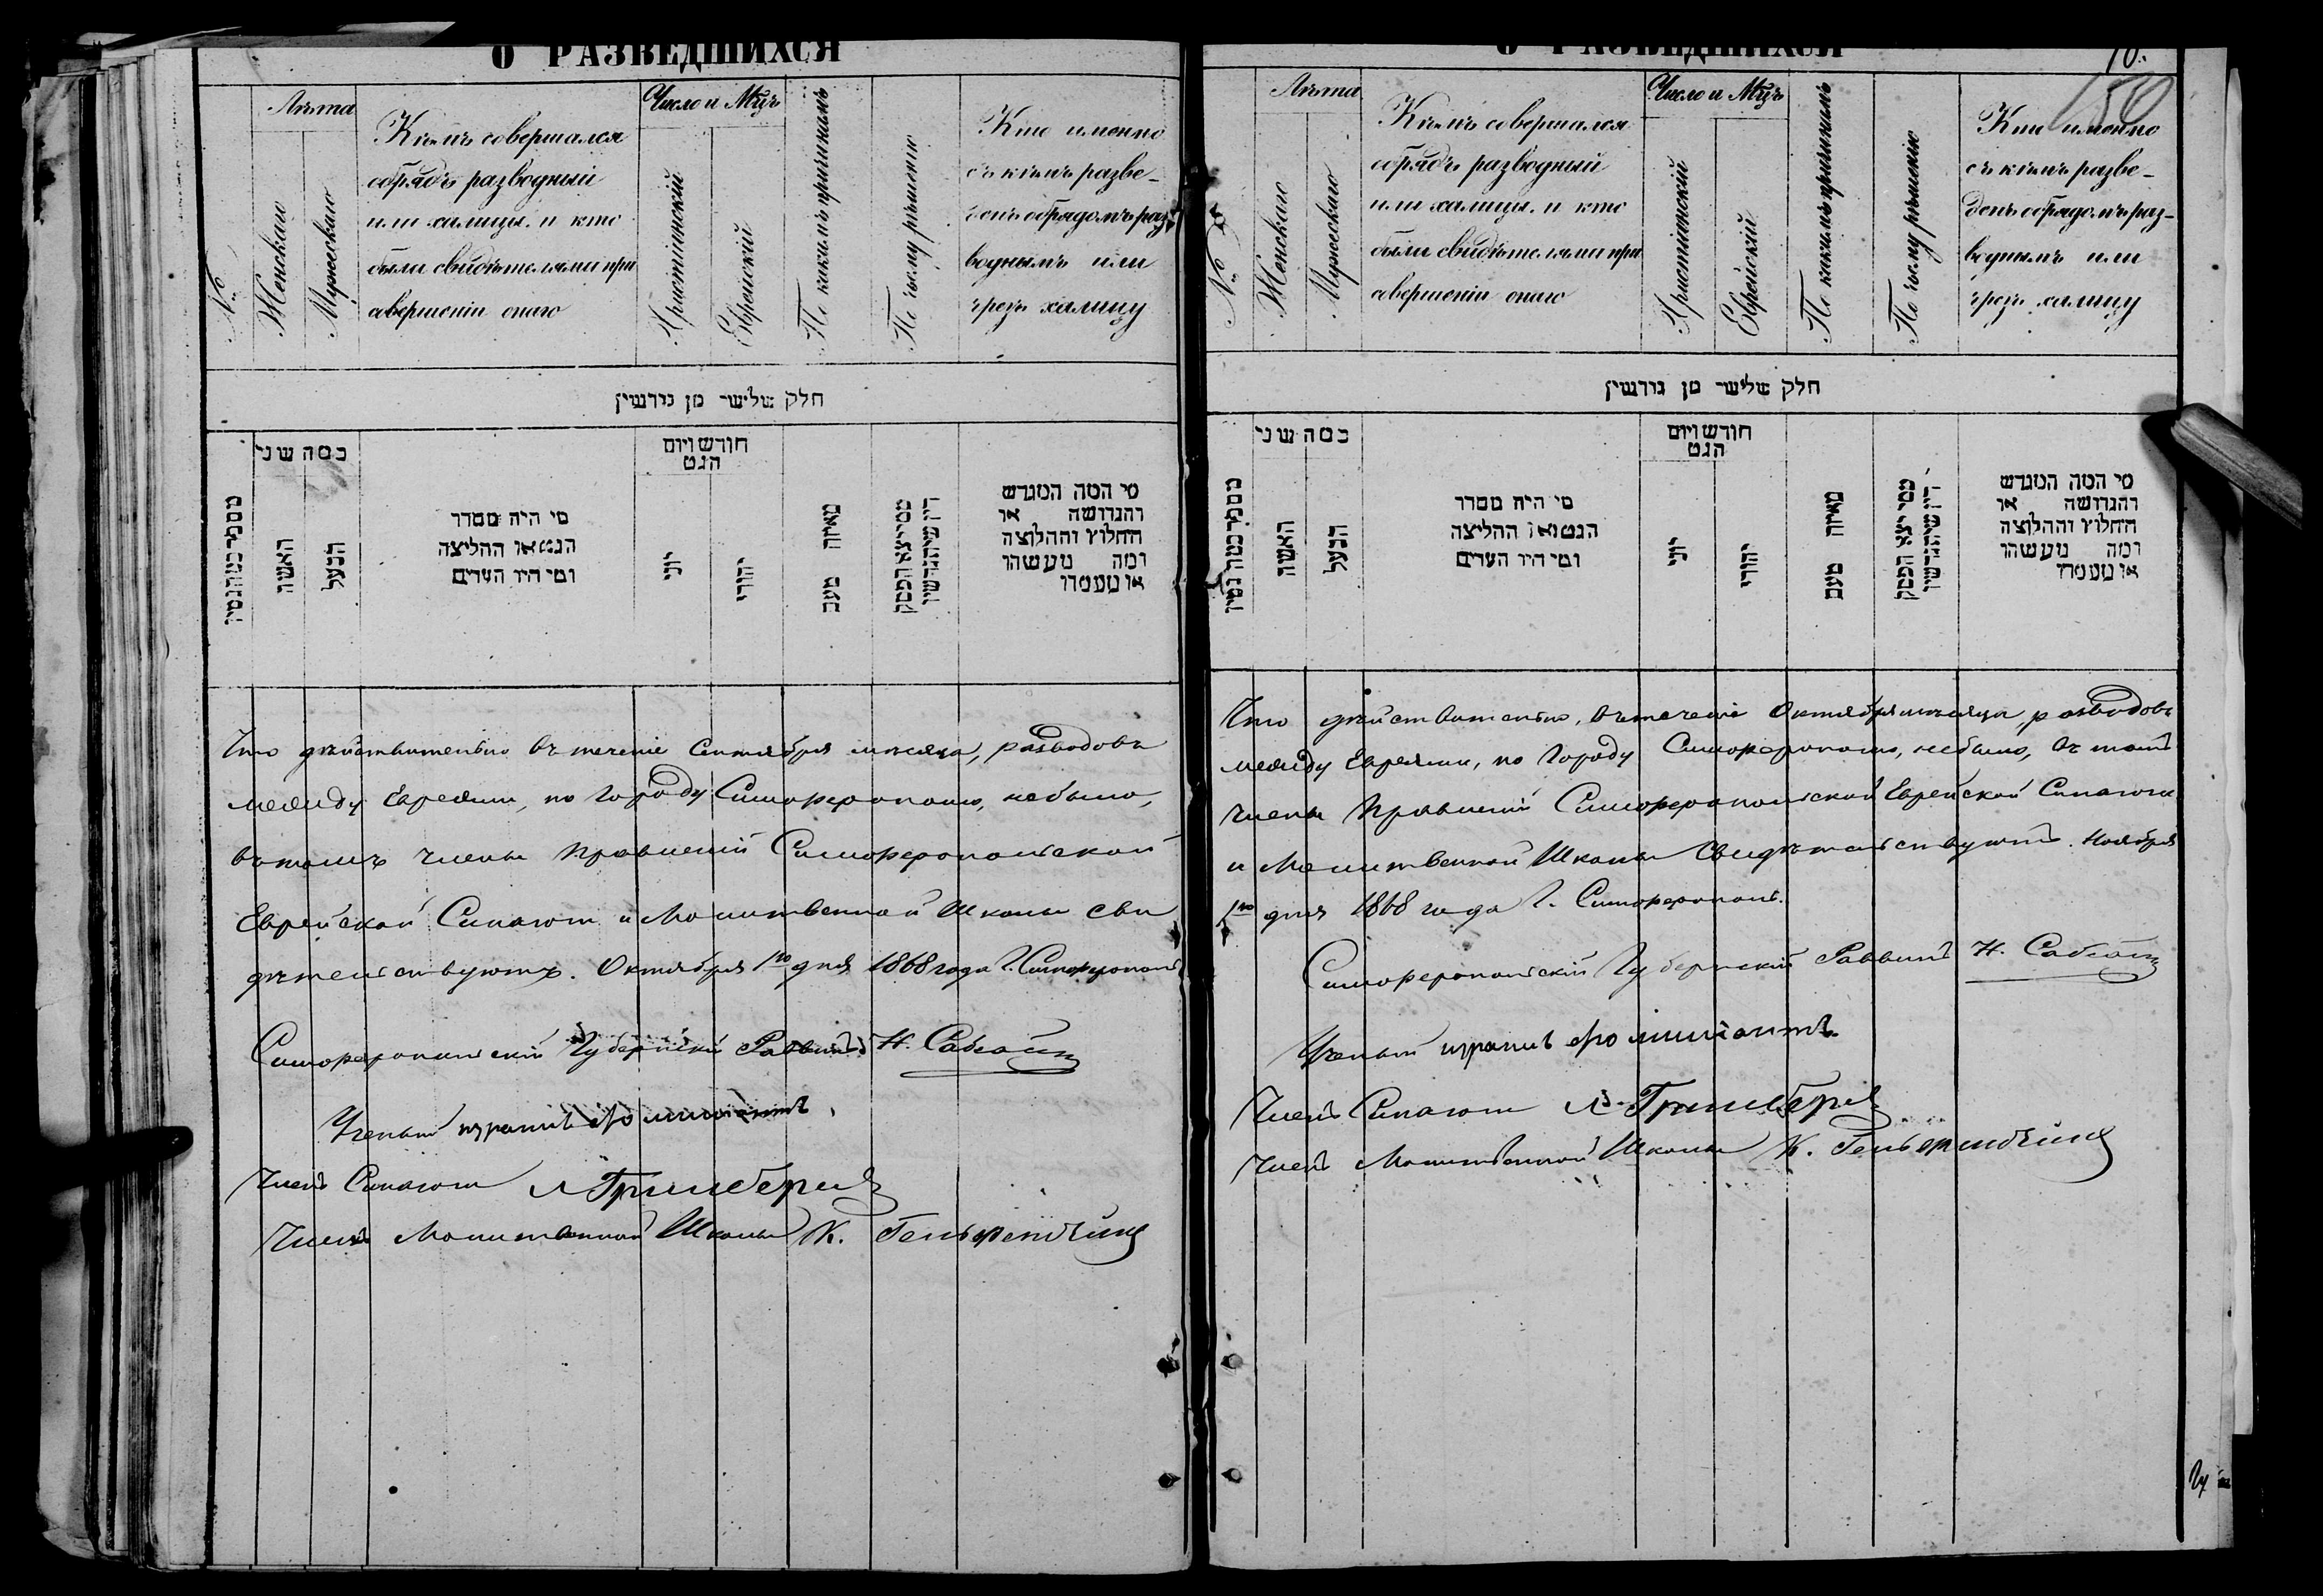 О РАЗВЕДШИХСЯ
№
Лѣта
Женскаго
Мужескаго
Кѣмъ совершался
обрядъ разводный
или халицы, и кто
были свидѣтелями при
совершеніи онаго
Число и Мцъ
Христіянскій
Еврейскій
По какимъ причинамъ
По чьему рѣшенію
Кто именно
съ кѣмъ разве-
денъ обрядомъ раз-
воднымъ или
чрезъ халицу
חלק שלישי מן גירושין
כמה שני
האשה
הבעל
מי היה מסדר
הגט או החליצה
ומי היו העדים
חודש ויום
הגט
יוני
יהודי
מאיזה טעם
ממי יצא הפסק
דין שיתגרשו
מי המה המגרש
והגרושה או
החלוץ והחלוצה
ומה מעשהו
או מעמדו
Что дѣйствительно въ теченіе Сентября мѣсяца, разводовъ
между Евреями, по Городу Симферополю, небыло,
въ томъ члены Правленій Симферопольской
Еврейской Синагоги и Молитвенной Школы сви
дѣтельствуютъ. Октября 1го дня 1868 года Г. Симферополь
Симферопольскій Губернскій Раввинъ Н.
Ученый
Членъ Синагоги Л Гринбергъ
Членъ Молитвенной Школы К.
О РАЗВЕДШИХСЯ
10.
50
№
Лѣта
Женскаго
Мужескаго
Кѣмъ совершался
обрядъ разводный
или халицы, и кто
были свидѣтелями при
совершеніи онаго
Число и Мцъ
Христіянскій
Еврейскій
По какимъ причинамъ
По чьему рѣшенію
Кто именно
съ кѣмъ разве-
денъ обрядомъ раз-
воднымъ или
чрезъ халицу
חלק שלישי מן גירושין
כמה שני
האשה
הבעל
מי היה מסדר
הגט או החליצה
ומי היו העדים
חודש ויום
הגט
יוני
יהודי
מאיזה טעם
ממי יצא הפסק
דין שיתגרשו
מי המה המגרש
והגרושה או
החלוץ והחלוצה
ומה מעשהו
או מעמדו
Что дѣйствительно, въ теченіе Октября мѣсяца, разводовъ
между Евреями, по Городу Симферополю, небыло, въ томъ
члены Правленій Симферопольской Еврейской Синагоги
и Молитвенной Школы Свидѣтельствуютъ. Ноября
1го дня 1868 года Г. Симферополь.
Симферопольскій Губернскій Раввинъ Н.
Ученый
Членъ Синагоги Л Гринбергъ
Членъ Молитвенной Школы К.